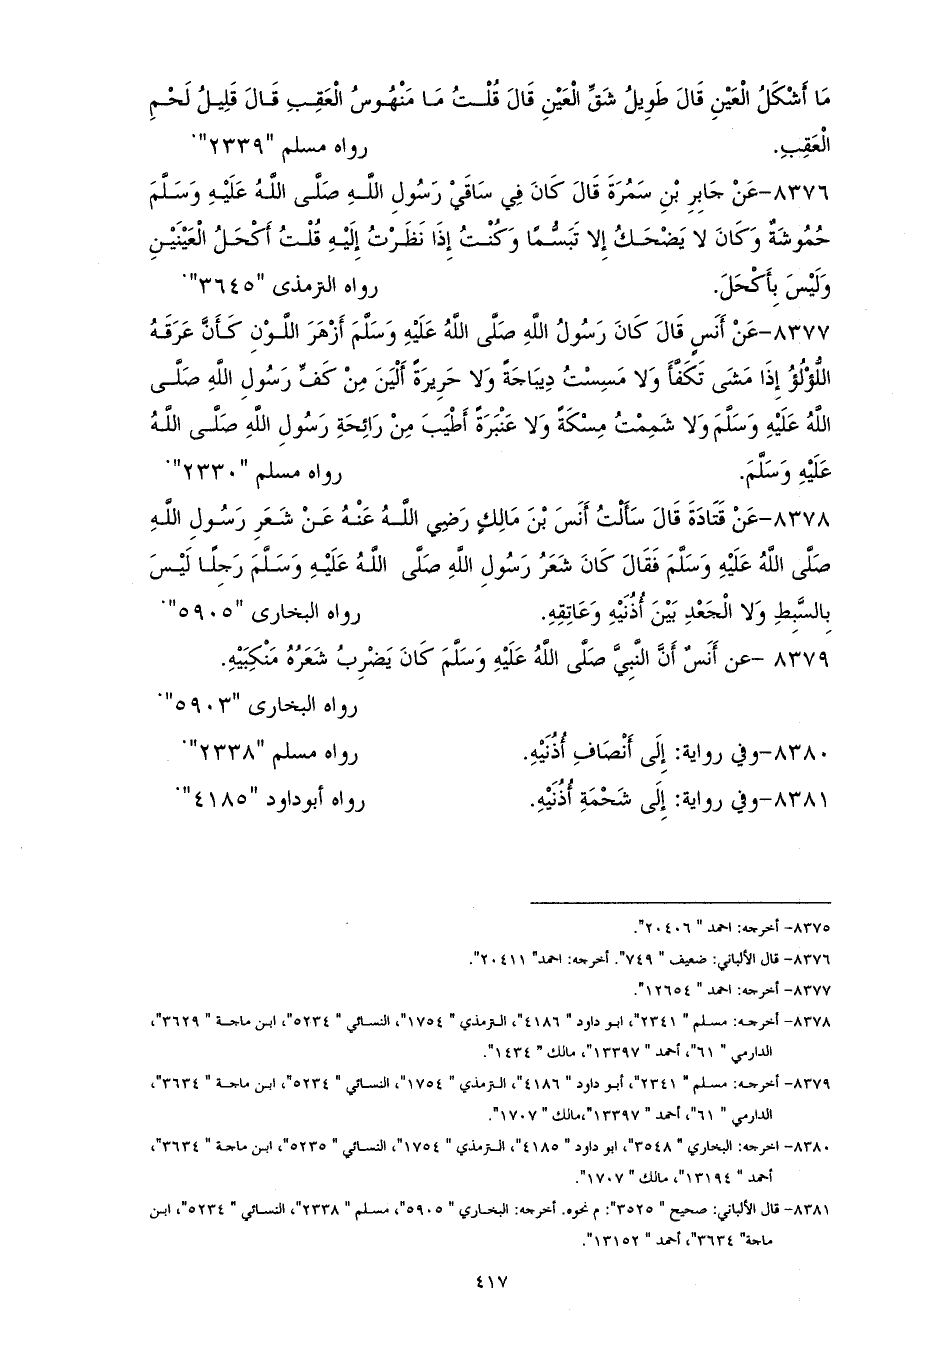 مَا أَشْكَلُ الْعَيْنِ قَالَ طَوِيلُ شَقِّ الْعَيْنِ قَالَ قُلْتُ مَا مَنْهُوسُ الْعَقِبِ قَالَ قَلِيلُ لَحْمِ
الْعَقِبِ. رواه مسلم "٢٣٣٩".
٨٣٧٦-عَنْ جَابِرِ بْنِ سَمُرَةَ قَالَ كَانَ فِي سَاقَيْ رَسُولِ اللَّهِ صَلَّى اللَّهُ عَلَيْهِ وَسَلَّمَ
حُمُوشَةٌ وَكَانَ لا يَضْحَكُ إِلا تَبَسُّمًا وَكُنْتُ إِذَا نَظَرْتُ إِلَيْهِ قُلْتُ أَكْحَلُ الْعَيْنَيْنِ
وَلَيْسَ بِأَكْحَلَ. رواه الترمذى "٣٦٤٥".
٨٣٧٧-عَنْ أَنَسٍ قَالَ كَانَ رَسُولُ اللَّهِ صَلَّى اللَّهُ عَلَيْهِ وَسَلَّمَ أَزْهَرَ اللَّوْنِ كَأَنَّ عَرَقَهُ
اللُّؤْلُؤُ إِذَا مَشَى تَكَفَّأَ وَلا مَسِسْتُ دِيبَاجَةً وَلا حَرِيرَةً أَلْيَنَ مِنْ كَفِّ رَسُولِ اللَّهِ صَلَّى
اللَّهُ عَلَيْهِ وَسَلَّمَ وَلا شَمِمْتُ مِسْكَةً وَلا عَنْبَرَةً أَطْيَبَ مِنْ رَائِحَةِ رَسُولِ اللَّهِ صَلَّى اللَّهُ
عَلَيْهِ وَسَلَّمَ. رواه مسلم "٢٣٣٠".
٨٣٧٨-عَنْ قَتَادَةَ قَالَ سَأَلْتُ أَنَسَ بْنَ مَالِكٍ رَضِي اللَّهُ عَنْهُ عَنْ شَعَرِ رَسُولِ اللَّهِ
صَلَّى اللَّهُ عَلَيْهِ وَسَلَّمَ فَقَالَ كَانَ شَعَرُ رَسُولِ اللَّهِ صَلَّى اللَّهُ عَلَيْهِ وَسَلَّمَ رَجِلًا لَيْسَ
بِالسَّبِطِ وَلا الْجَعْدِ بَيْنَ أُذُنَيْهِ وَعَاتِقِهِ. رواه البخارى "٥٩٠٥".
٨٣٧٩ -عن أَنَسٌ أَنَّ النَّبِيَّ صَلَّى اللَّهُ عَلَيْهِ وَسَلَّمَ كَانَ يَضْرِبُ شَعَرُهُ مَنْكِبَيْهِ.
رواه البخارى "٥٩٠٣".
٨٣٨٠-وفي رواية: إِلَى أَنْصَافِ أُذُنَيْهِ. رواه مسلم "٢٣٣٨".
٨٣٨١-وفي رواية: إِلَى شَحْمَةِ أُذُنَيْهِ. رواه أبوداود "٤١٨٥".
٨٣٧٥- أخرجه: احمد " ٢٠٤٠٦".
٨٣٧٦- قال الألباني: ضعيف " ٧٤٩". أخرجه: احمد" ٢٠٤١١".
٨٣٧٧- أخرجه: احمد " ١٢٦٥٤".
٨٣٧٨- أخرجه: مسلم " ٢٣٤١"، ابو داود " ٤١٨٦"، الترمذي " ١٧٥٤"، النسائي " ٥٢٣٤"، ابن ماجة " ٣٦٢٩"،
الدارمي " ٦١"، أحمد " ١٣٣٩٧"، مالك " ١٤٣٤".
٨٣٧٩- أخرجه: مسلم " ٢٣٤١"، أبو داود " ٤١٨٦"، الترمذي " ١٧٥٤"، النسائي " ٥٢٣٤"، ابن ماجة " ٣٦٣٤"،
الدارمي " ٦١"، أحمد " ١٣٣٩٧"،مالك " ١٧٠٧".
٨٣٨٠- اخرجه: البخاري " ٣٥٤٨"، ابو داود " ٤١٨٥"، الترمذي " ١٧٥٤"، النسائي " ٥٢٣٥"، ابن ماجة " ٣٦٣٤"،
أحمد " ١٣١٩٤"، مالك " ١٧٠٧".
٨٣٨١- قال الألباني: صحيح " ٣٥٢٥": م نحوه. أخرجه: البخاري " ٥٩٠٥"، مسلم " ٢٣٣٨"، النسائي " ٥٢٣٤"، ابن
ماجة" ٣٦٣٤"، أحمد " ١٣١٥٢".
٤١٧